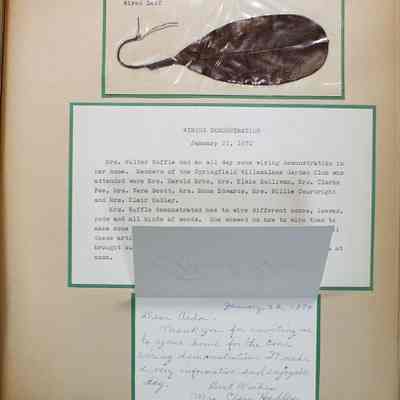 Wired Leaf
WIRING DEMONSTRATION
January 21, 1970
Mrs. Walter Waffle had an all day cone wiring demonstration in
her home. Members of the Springfield Willamalane Garden Club who
attended were Mrs. Harold Brbs, Mrs. Elmie Sullivan, Mrs. Clarke
Poe, Mrs. Vera Scott, Mrs. Edna Edwards, Mrs. Billie Courtright
and Mrs. Clair Hadley.
Mrs. Waffle demonstrated how to wire different cones, leaves,
pods and all kinds of seeds. She showed us how to wire them to
make some
these arti
brought s at
noon.
January 22, 1970
Dear Arda,
Thank you for inviting me
to your home for the cone
wiring demonstration. It made
a very informative and enjoyable
day.
Best Wishes
Mrs. Clair Hadley